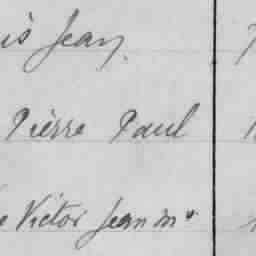 is Jean
Pierre Paul
Victor Jean M